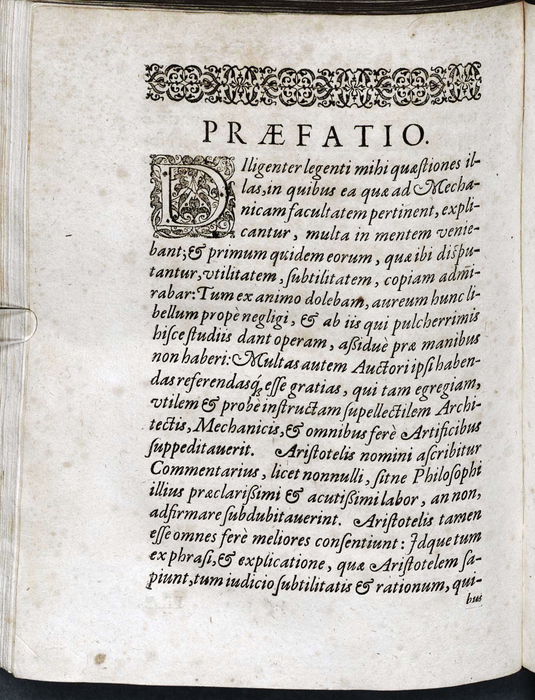 PRÆFATIO.
DIligenter legenti mihi quæſtiones il-
las, in quibus ea quæ ad Mecha-
nicam facultatem pertinent, expli-
cantur, multa in mentem venie-
bant; & primum quidem eorum, quæ ibi diſpu-
tantur, vtilitatem, ſubtilitatem, copiam admi-
rabar: Tum ex animo dolebam, aureum hunc li-
bellum propè negligi, & ab iis qui pulcherrimis
hiſce ſtudiis dant operam, aſsiduè præ manibus
non haberi: Multas autem Auctori ipſi haben-
das referendasq́; eſſe gratias, qui tam egregiam,
vtilem & probè inſtructam ſupellectilem Archi-
tectis, Mechanicis, & omnibus ferè Artificibus
ſuppeditauerit. Ariſtotelis nomini aſcribitur
Commentarius, licet nonnulli, ſitne Philoſophi
illius præclariſsimi & acutiſsimi labor, an non,
adfirmare ſubdubitauerint. Ariſtotelis tamen
eſſe omnes ferè meliores conſentiunt: Idque tum
ex phraſi, & explicatione, quæ Ariſtotelem ſa-
piunt, tum iudicio ſubtilitatis & rationum, qui-
bus